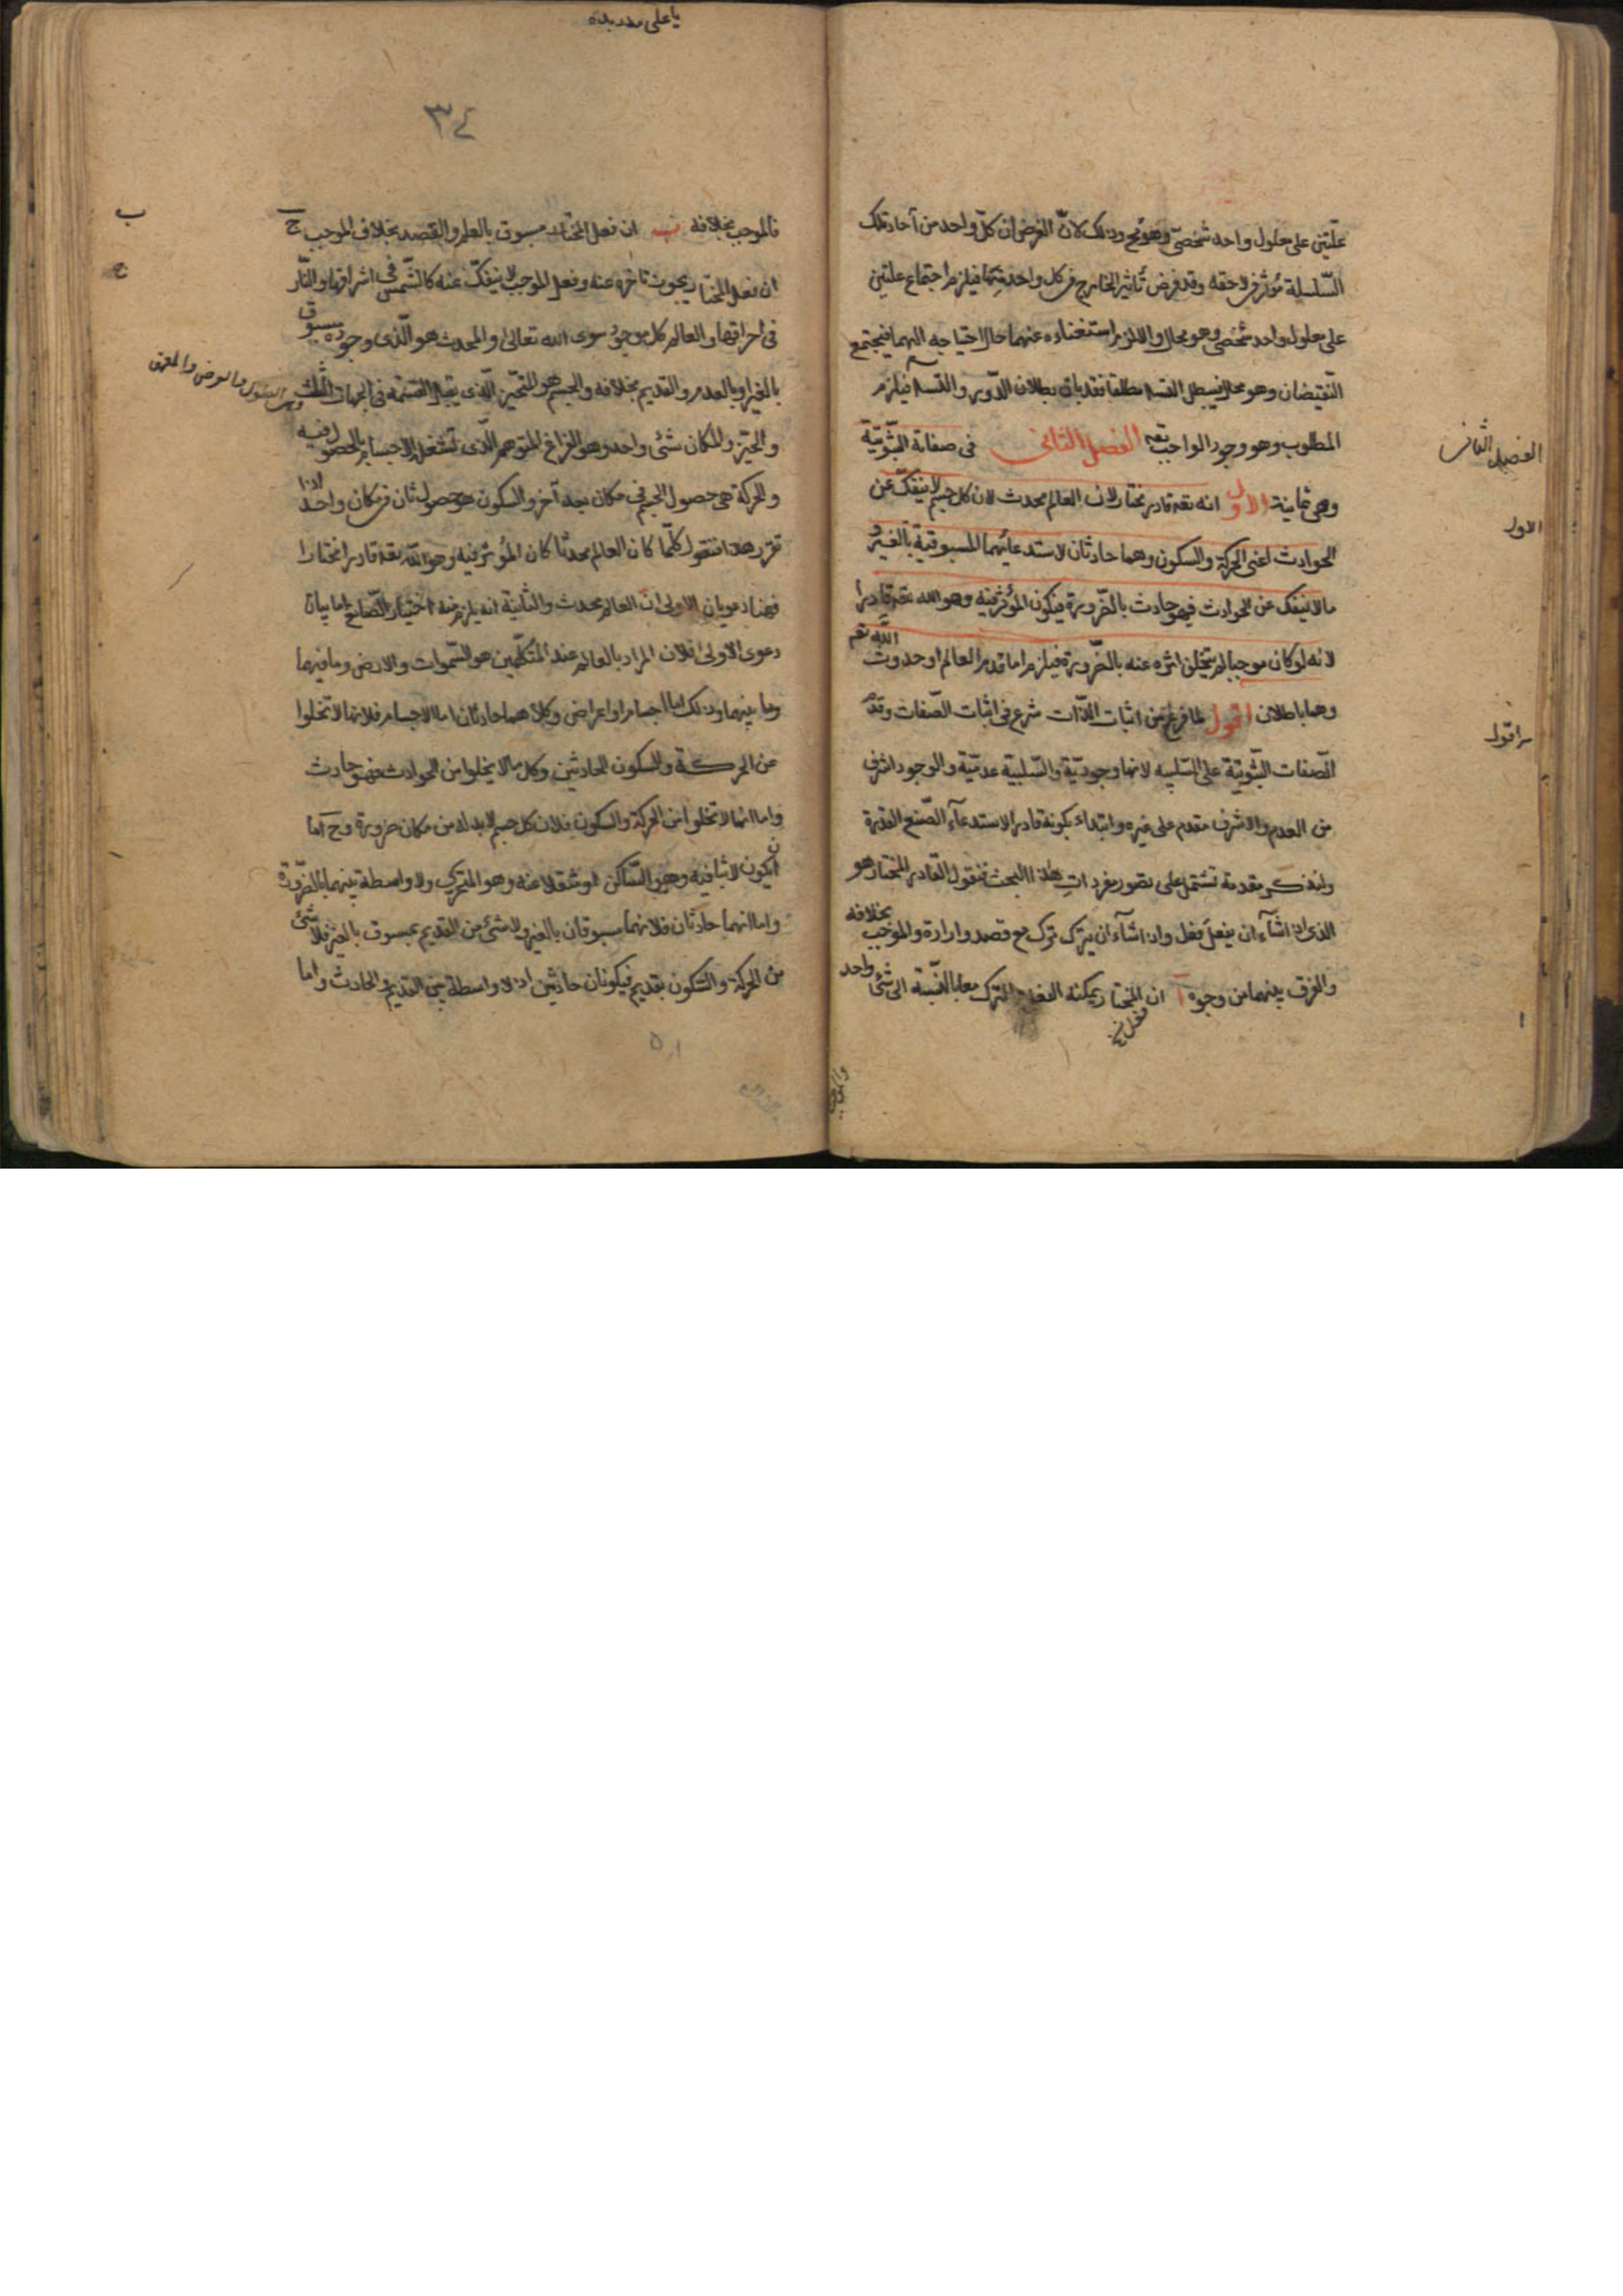 علتين على معلول واحد شخصى وهو مح وذلك لانّ الفرض ان كلّ واحد من آحاد تلك
السّلسلة مؤثر فى لاحقه وقد فرض تأثير الخارج فى كل واحد منها فيلزم اجتماع علتين
على معلول واحد شخصى وهو محال والا لزم استغناءه عنهما حال احتياجه اليهما فيجتمع
النّقيضان وهو محال فيبطل التسلسل مطلقا فقد بان بطلان الدّور والتسلسل فيلزم
المطلوب وهو وجود الواجب تعه الفصل الثانى فى صفاته الثّبوتيّة
وهى ثمانية الاول انه تعه قادر مختار لان العالم محدث لان كل جسم لا ينفكّ عن
الحوادث اعنى الحركة والسكون وهما حادثان لاستدعائهما المسبوقية بالغير و
ما لا ينفك عن الحوادث فهو حادث بالضّرورة فيكون المؤثر فيه وهو الله تعه قادرا
الله تعم
لانه لو كان موجبا لم يتخلف اثره عنه بالضّرورة فيلزم اما قدم العالم او حدوث
وهما باطلان اقول لما فرغ من اثبات الذّات شرع فى اثبات الصّفات وقدّم
الصّفات الثبّوتيّة على السّلبيه لانها وجوديّة والسّلبية عدميّة والوجود اشرف
من العدم والاشرف مقدم على غيره وابتداء بكونه قادر الاستدعآء الصّنع القدرة
ولنذكر مقدمة تشتمل على تصور مفردات هذا البحث فنقول القادر المختار هو
الذى اذا شآء ان يفعل فعل واذا شآء ان يترك ترك مع قصد وارادة والموجب بخلافه
والفرق بينهما من وجوه آ ان المختار يمكنه الفعل والترك معا بالنّسبة الى شئ واحد
الفصل الثانى
الاول
اقول
ا
يا على
٣٤
فالموجب بخلافه ب ان فعل المختار مسبوق بالعلم والقصد بخلاف الموجب ج
ان فعل المختار يجوز تاخره عنه وفعل الموجب لا ينفكّ عنه كالشّمس فى اشراقها والنّار
فى احراقها والعالم كل موجود سوى الله تعالى والمحدث هو الّذى وجوده مسبوق
بالغير او بالعدم والقديم بخلافه والجسم هو المتحّيز الّذى يقبل القسمة فى الجهات الثلث
والحيّز والمكان شئ واحد وهو الفراغ المتوهم الّذى تشغله الاجسام بالحصول فيه
والحركة هى حصول الجسم فى مكان بعد آخر والسكون هو حصول ثان فى مكان واحد اذا
تقرر هذا فنقول كلّما كان العالم محدثا كان المؤثر فيه وهو الله تعه قادرا مختارا
فهنا دعويان الاولى انّ العالم محدث والثانية انه يلزم منه اختيار الصّانع اما بيان
دعوى الاولى فلان المراد بالعالم عند المتكلّمين هو السّموات والارض وما فيهما
وما بينهما وذلك اما اجسام او اعراض وكلاهما حادثان اما الاجسام فلانها لا تخلوا
عن الحركة والسكون الحادثين وكل ما لا يخلوا من الحوادث فهو حادث
واما انها لا تخلوا من الحركة والسكون فلان كل جسم لا بد له من مكان ضرورة وح اما
ان يكون لابثا فيه وهو السّاكن او منتقلا عنه وهو المتحرك ولا واسطة بينهما بالضّرورة
واما انهما حادثان فلانهما مسبوقان بالغير ولا شئ من القديم بمسبوق بالغير فلا شئ
من الحركة والسّكون بقديم فيكونان حادثين اذ لا واسطة بين القديم والحادث واما
ب
ج